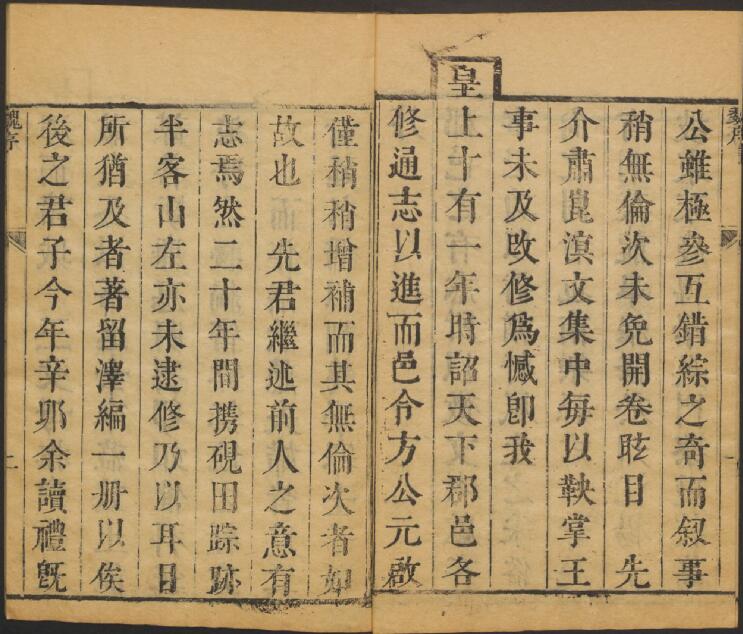 公雖極參互錯綜之奇而叙事
稍無倫次未免開卷眩目 先
介肅崑溟文集中每以鞅掌王
事未及改修爲憾卽我
皇上十有一年時詔天下郡邑各
修通志以進而邑令方公元啟
僅稍稍增補而其無倫次者如
故也而 先君繼述前人之意有
志焉然二十年間携硯田踪跡
半客山左亦未逮修乃以耳目
所猶及者著留澤編一册以俟
後之君子今年辛卯余讀禮旣
魏序